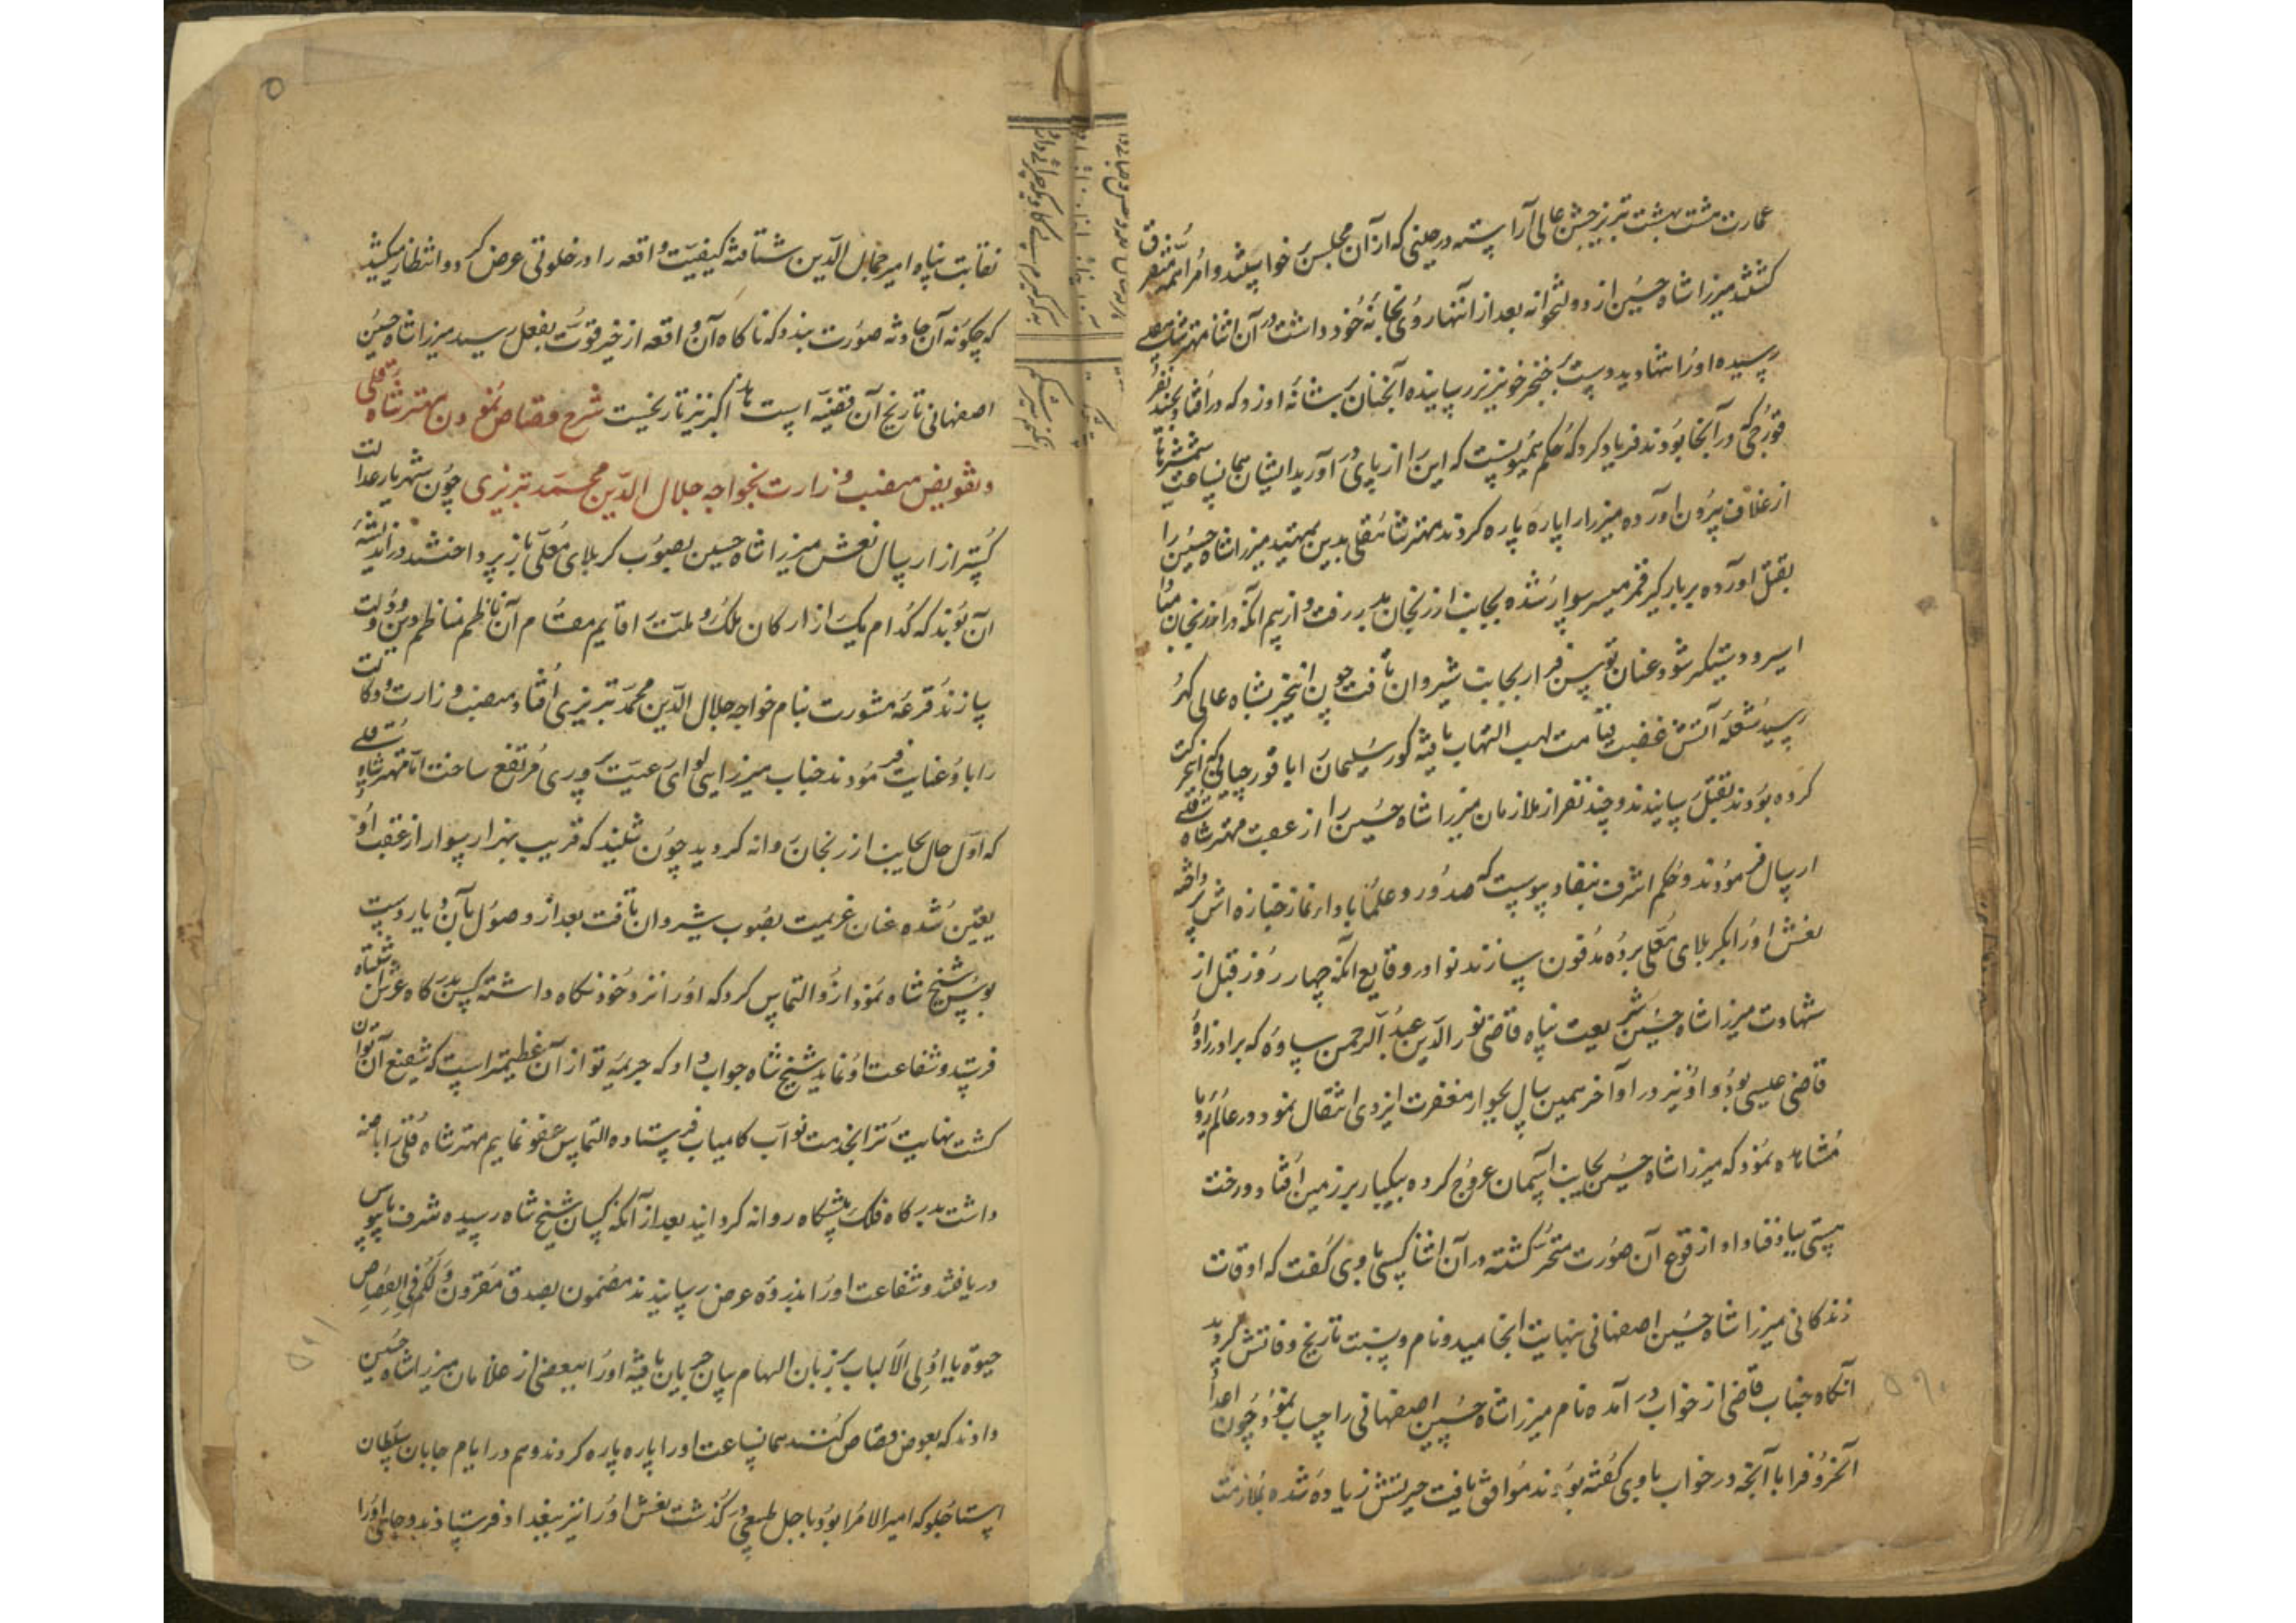 عمارت هشت بهشت تبریز جشن عالی آراسته در حینی که از آن مجلس خواستند و امرا همه متفرق
کشتند میرزا شاه حسین از دولتخوانه بعد از انتها روی بخانه خود داشت در آن اثنا مهتر شاه قلی
رسیده او را تنها دید دست بخنجر خونریز رسانیده آنچنان بر شانه او زد که در افتاد و بچند نفر
قورچی که در آنجا بودند فریاد کرد که حکم همیونست که این را از پای در آورید ایشان همانساعت شمشیرها
از غلاف بیرون آورده میرزا را پاره پاره کردند مهتر شاه قلی بدین تمهید میرزا شاه حسین را
بقتل آورده بر بارگیر قمر مسیر سوار شده بجانب ارزنجان بدر رفت و از بیم آنکه در ارزنجان مبادا
اسیر و دستیکر شود عنان توسن فرار بجانب شیروان تافت چون این خبر بشاه عالی گهر
رسید شعله آتش غضب قیامت لهب التهاب یافته کور سلیمان را با قورچیانی که این حرکت
کرده بودند بقتل رسانیدند و چند نفر از ملازمان میرزا شاه حسین را از عقب مهتر شاه قلی
ارسال فرمودند و حکم اشرف بنفاذ پیوست که صدور و علما باداء نماز جنازه اش پرداخته
نعش او را بکربلای معلی برده مدفون سازند نوادر وقایع آنکه چهار روز قبل از
شهادت میرزا شاه حسین شریعت پناه قاضی نور الدین عبد الرحمن ساوه که برادر زاده
قاضی عیسی بود و او نیز در اواخر همین سال بجوار مغفرت ایزدی انتقال نمود در عالم رویا
مشاهده نمود که میرزا شاه حسین بجانب آسمان عروج کرده بیکبار بر زمین افتاد و رخت
هستی بباد فنا داد از وقوع آن صورت متحیر گشته در آن اثنا کسی با وی گفت که اوقات
زندکانی میرزا شاه حسین اصفهانی بنهایت انجامید و نام و نسبت تاریخ وفاتش گردید
آنکاه جناب قاضی از خواب در آمده نام میرزا شاه حسین اصفهانی را حساب نمود و چون اعداد
آنحروف را با آنچه در خواب با وی گفته بودند موافق یافت حیرتش زیاده شده بملازمت
۵۹۰
نقابت پناه امیر جمال الدین شتافته کیفیت واقعه را در خلوتی عرض کرد و انتظار میکشید
که چکونه آن حادثه صورت بندد که ناکاه آن واقعه از خیر قوت بفعل رسید میرزا شاه حسین
اصفهانی تاریخ آن قضیه است اکبر نیز تاریخیست شرح قصاص نمودن مهتر شاه قلی
و تفویض منصب وزارت بخواجه جلال الدین محمد تبریزی چون شهریار عدالت
کستر از ارسال نعش میرزا شاه حسین بصوب کربلای معلی باز پرداختند در اندیشه
آن بودند که کدام یک از ارکان ملک و ملت را قایم مقام آن ناظم مناظم دین و دولت
سازند قرعه مشورت بنام خواجه جلال الدین محمد تبریزی افتاد و منصب وزارت و وکالت
را باو عنایت فرمودند جناب میرزایی لوای رعیت پروری مرتفع ساخت اما مهتر شاه قلی
که اول حال بجانب ارزنجان روانه کردید چون شنید که قریب بهزار سوار از عقب او
یعین شده عنان عزیمت بصوب شیروان تافت بعد از وصول بآن دیار دست
بوس شیخ شاه نمود ازو التماس کرد که او را نزد خود نگاه داشته کس بدرکاه عرش اشتباه
فرستد و شفاعت او نماید شیخ شاه جواب داد که جریمه تو از آن عظیمتر است که شفیع آن توان
کشت نهایت ترا بخدمت نواب کامیاب فرستاده التماس عفو نمایم مهتر شاه قلی را با
داشت بدرکاه فلک پیشگاه روانه کردانید بعد از آنکه کسان شیخ شاه رسیده شرف پابوس
دریافتند و شفاعت او را بذروه عرض رسانیدند مضمون بصدق مقرون و لکم فی القصاص
حیوة یا اولی الالباب بر زبان الهام بیان جریان یافته او را ببعضی از غلامان میرزا شاه حسین
دادند که بعوض قصاص کنند همانساعت او را پاره پاره کردند و هم در ایام جابان سلطان
استاجلو که امیر الامرا بود باجل طبیعی در گذشت نعش او را نیز ببغداد فرستادند و جای او را
۵۹۱